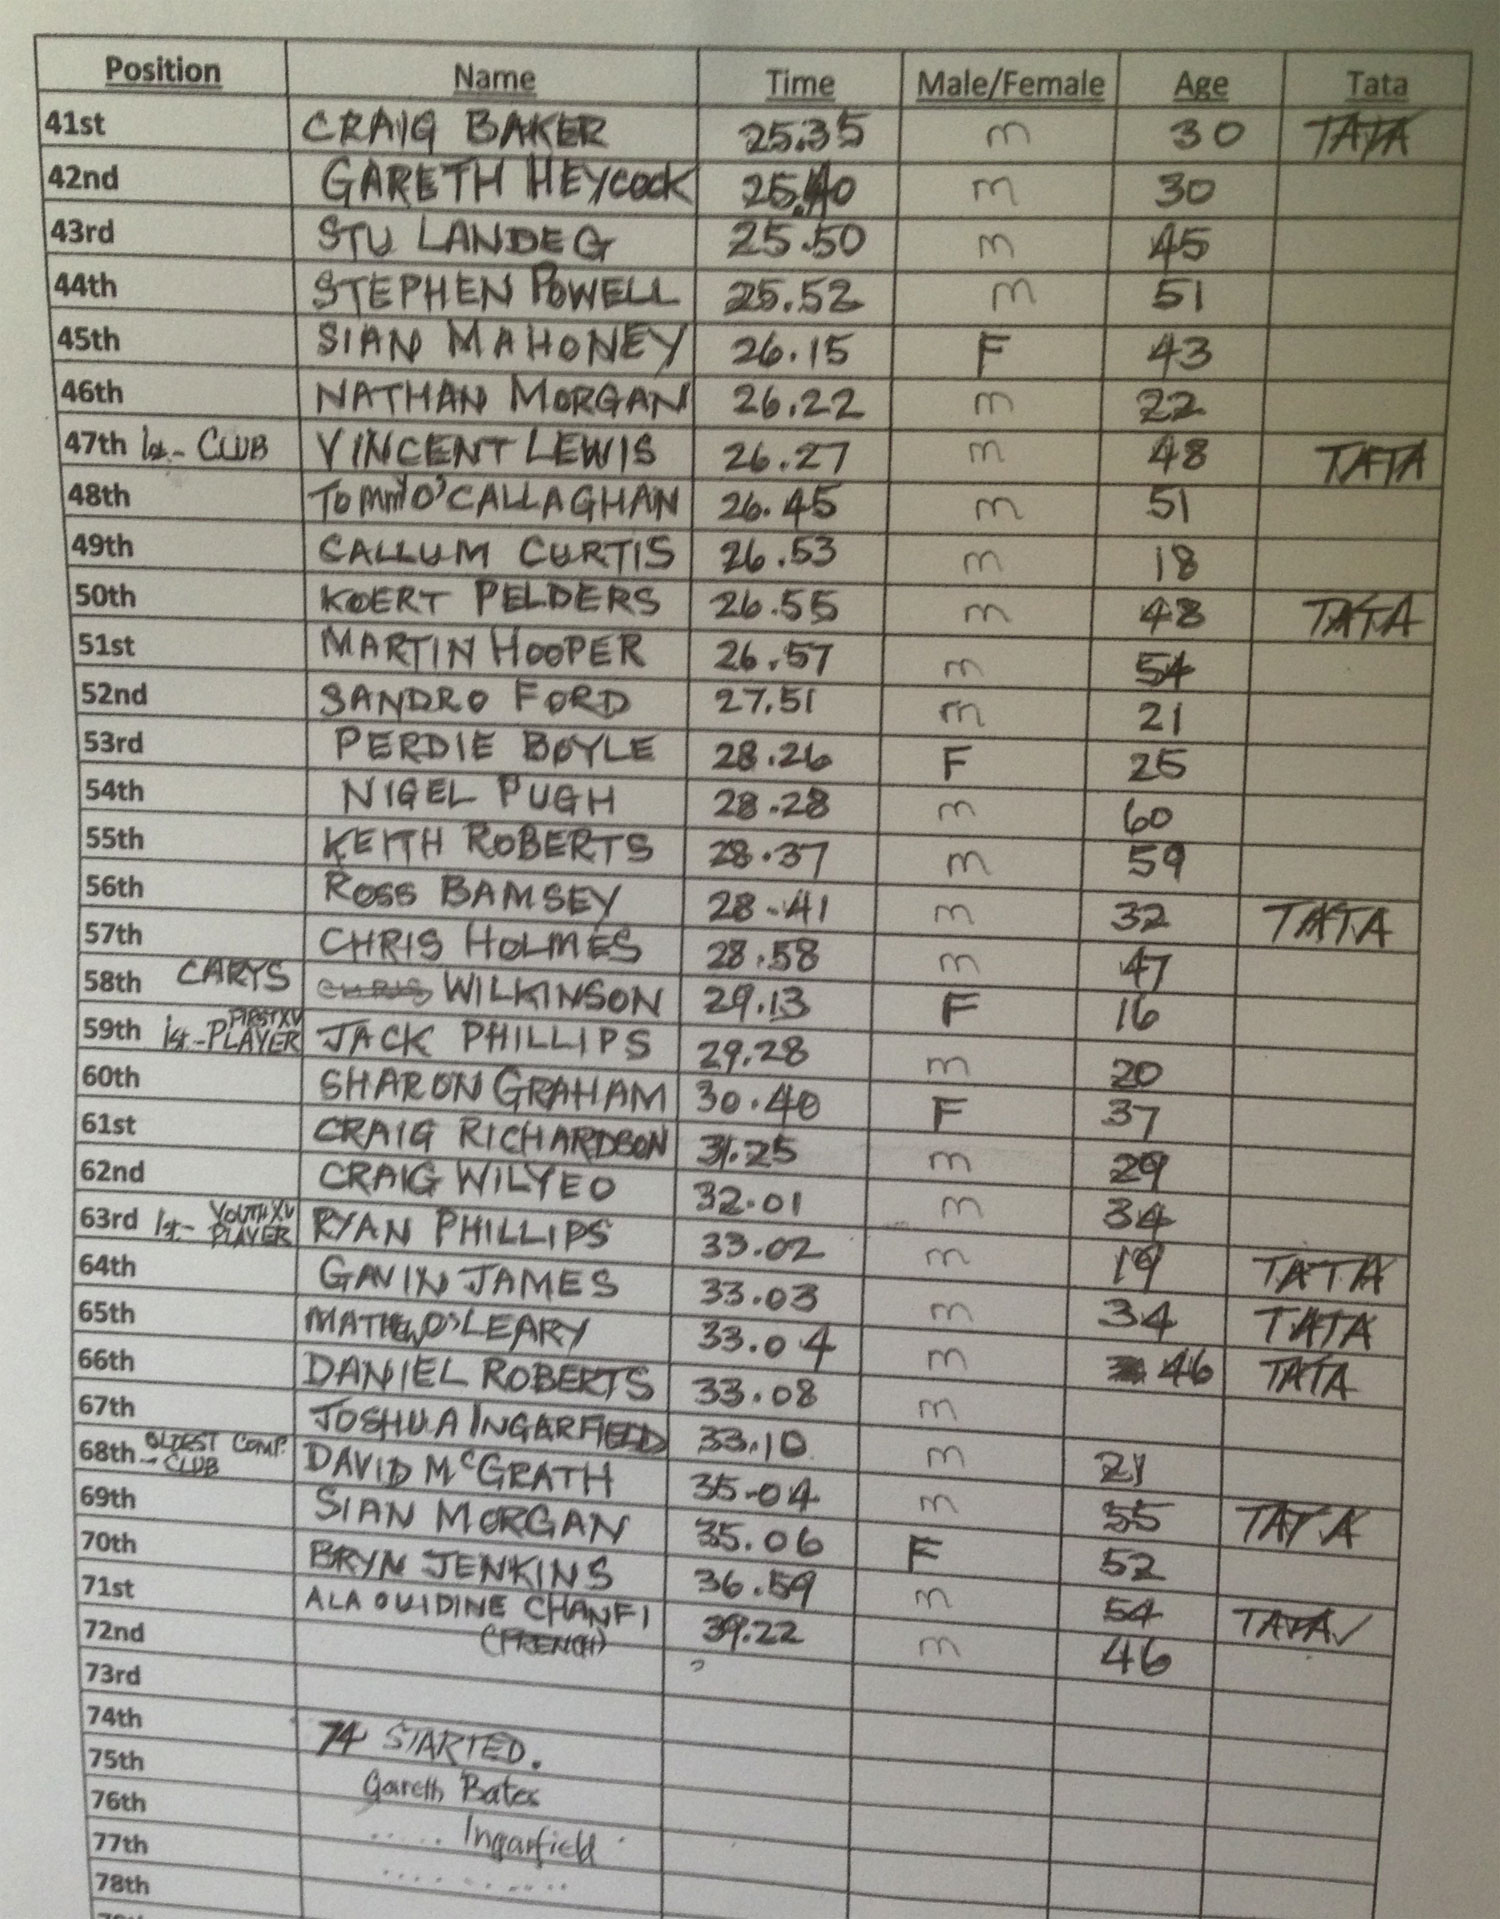 Position Name Time Male/Female Age Tata
41st CRAIG BAKER 25.35 m 30 TATA
42nd GARETH HEYcock 25.40 m 30
43rd STU LANDEG 25.50 m 45
44th STEPHEN POWELL 25.52 m 51
45th SIAN MAHONEY 26.15 F 43
46th NATHAN MORGAN 26.22 m 22
47th 1st - CLUB VINCENT LEWIS 26.27 m 48 TATA
48th O'CALLAGHAN 26.45 m 51
49th CALLUM CURTIS 26.53 m 18
50th KOERT PELDERS 26.55 m 48 TATA
51st MARTIN HOOPER 26.57 m 54
52nd SANDRO FORD 27.51 m 21
53rd PERDIE BOYLE 28.26 F 25
54th NIGEL PUGH 28.28 m 60
55th KEITH ROBERTS 28.37 m 59
56th ROSS BAMSEY 28.41 m 32 TATA
57th CHRIS HOLMES 28.58 m 47
58th CARYS CHRIS WILKINSON 29.13 F 16
59th 1st - FIRST XV PLAYER JACK PHILLIPS 29.28 m 20
60th SHARON GRAHAM 30.40 F 37
61st CRAIG RICHARDSON 31.25 m 29
62nd CRAIG WILYEO 32.01 m 34
63rd 1st - YOUTH XV PLAYER RYAN PHILLIPS 33.02 m 19 TATA
64th GAVIN JAMES 33.03 m 34 TATA
65th MATHEW O'LEARY 33.04 m 46 TATA
66th DANIEL ROBERTS 33.08 m
67th JOSHUA INGARFIELD 33.10 m 21
68th OLDEST COMP. - CLUB DAVID McGRATH 35.04 m 55 TATA
69th SIAN MORGAN 35.06 F 52
70th BRYN JENKINS 36.59 m 54 TATA ✓
71st ALAOUIDINE CHANFI 39.22 m 46
72nd (FRENCH)
73rd
74th 74 STARTED.
75th Gareth Bates
76th ..... Ingarfield
77th ..........
78th